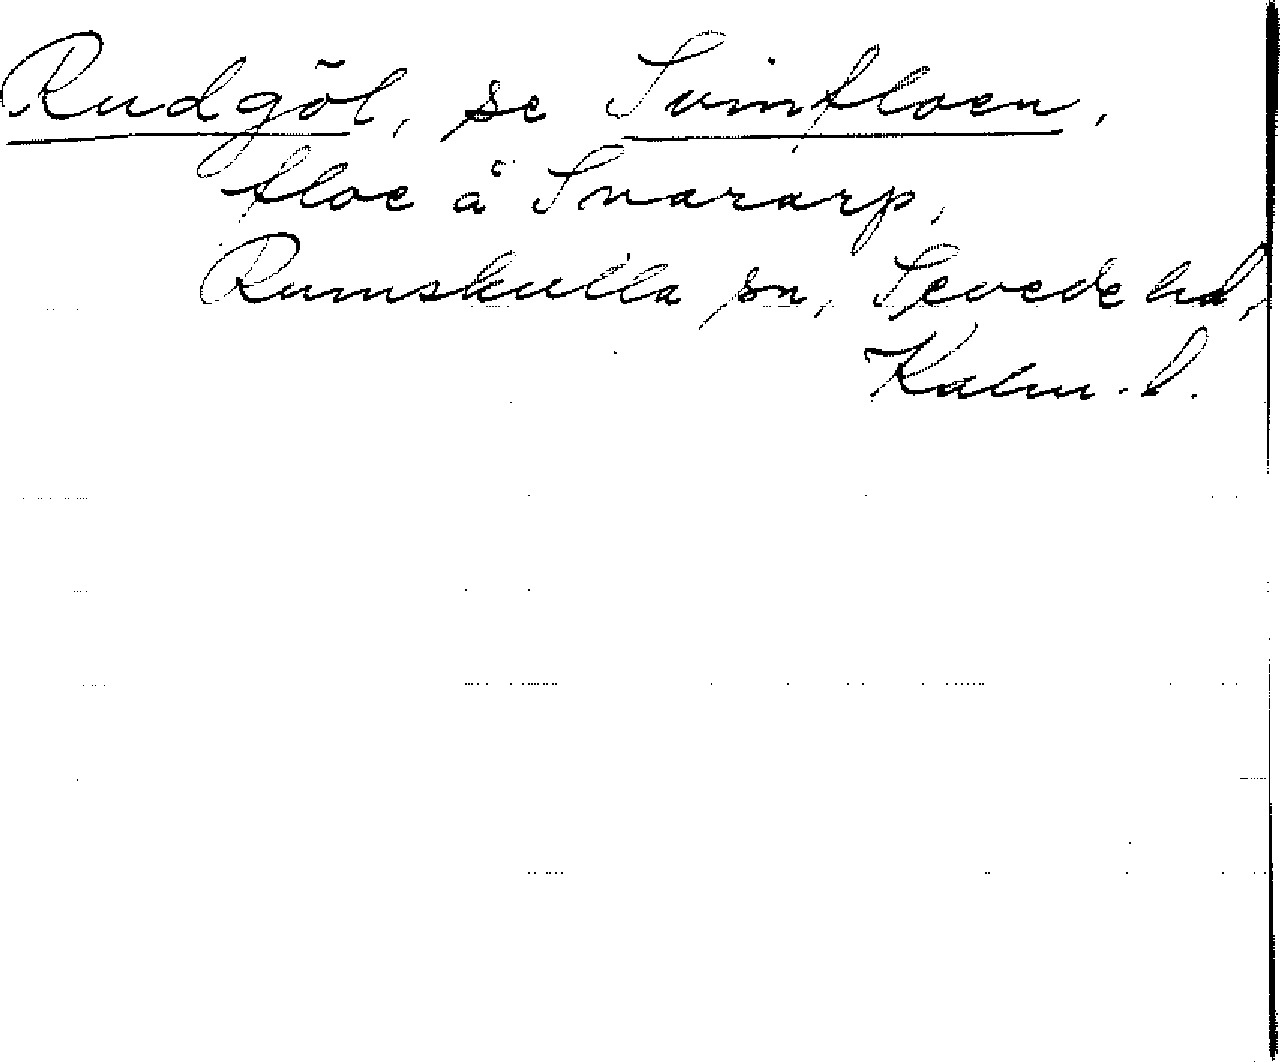 Rudgöl, se Svinfloen,
floe å Snararp,
Rumskulla sn, Sevede hd,
Kalm. l.